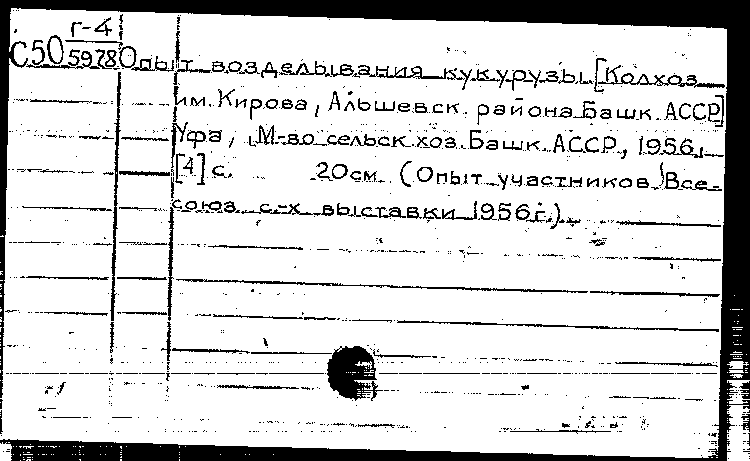 С50 Г-4/5978 Опыт возделывания кукурузы. [Колхоз
им. Кирова, Альшевск. района Башк. АССР]
Уфа, М-во сельск. хоз. Башк. АССР, 1956.
[4] с. 20см. (Опыт участников Все-
союз. с.-х. выставки 1956г.).